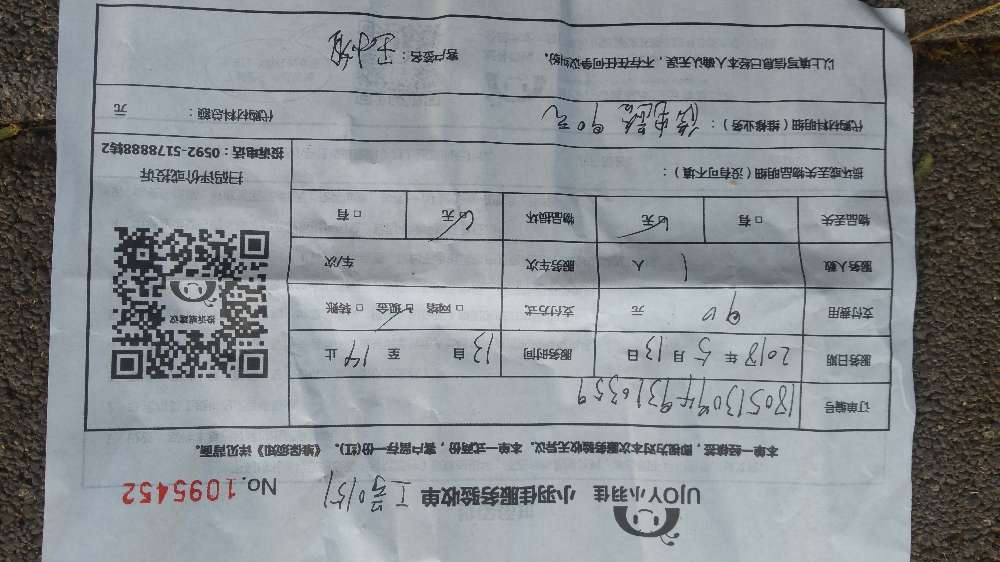 UJOY小羽佳 小羽佳服务验收单 工号0151 No.1095452
本单一经签, 即视为对本次服务验收无异议。本单一式两份, 客户留存一份(红)。《维保须知》详见背面。
订单编号
服务日期 2018年5月13日 服务时间 13自 至14止
支付费用 90元 支付方式 □网络 □现金 □转账
服务人数 1人 服务车次 车/次
物品丢失 □有 □无 物品损坏 □无 □有
损坏或丢失物品明细(没有可不填):
投诉或建议
扫码评价或投诉
投诉电话:0592-5178888转2
代购材料明细(维修业务): 90元 代购材料总额: 元
以上填写信息已经本人确认无误, 不存在任何争议纠纷。 客户签名: